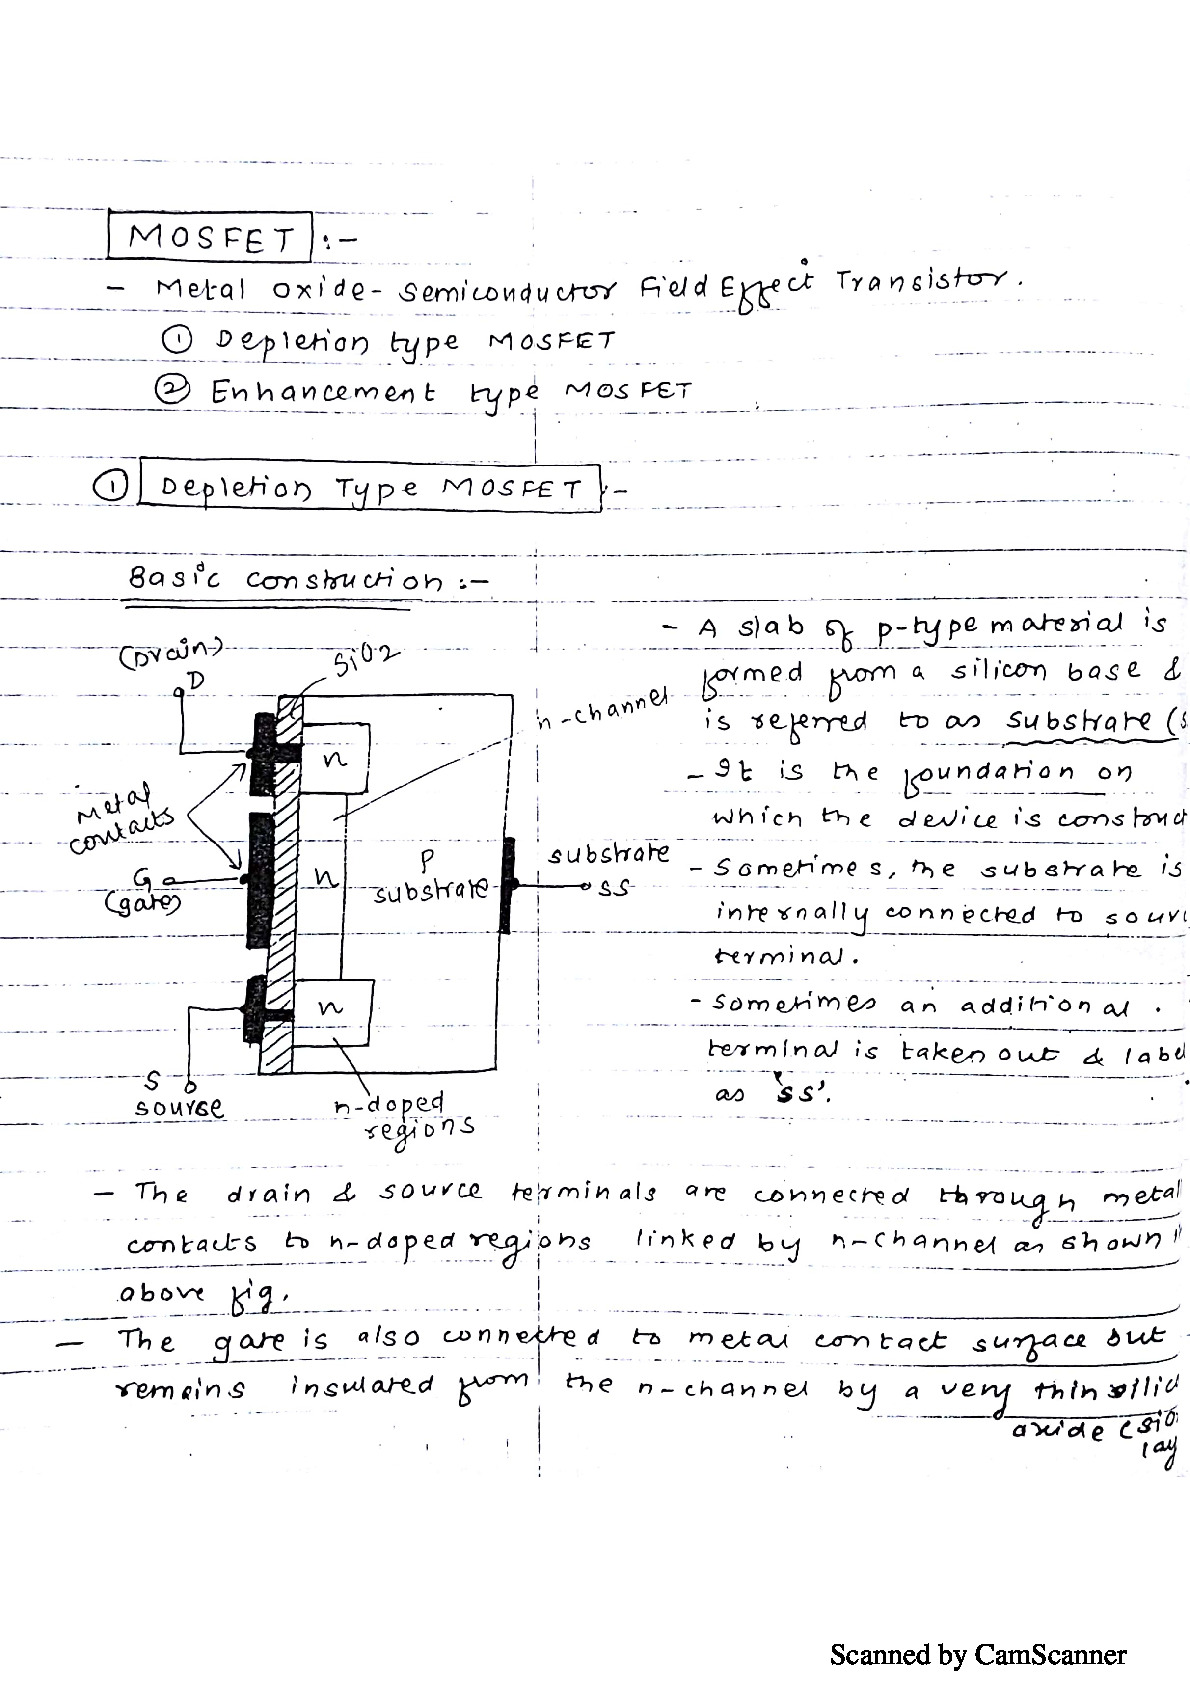 MOSFET :-
- Metal oxide-semiconductor Field Effect Transistor.
① Depletion type MOSFET
② Enhancement type MOSFET
① Depletion Type MOSFET :-
Basic construction :-
(Drain)
D
SiO2
n-channel
n
Metal
contacts
G
(gate)
n
P
substrate
substrate
SS
n
S
source
n-doped
regions
- A slab of p-type material is
formed from a silicon base &
is referred to as substrate (s
- It is the foundation on
which the device is construct
- Sometimes, the substrate is
internally connected to sour
terminal.
- sometimes an additional
terminal is taken out & label
as 'SS'.
- The drain & source terminals are connected through metal
contacts to n-doped regions linked by n-channel as shown
above fig.
- The gate is also connected to metal contact surface but
remains insulated from the n-channel by a very thin silic
oxide (sio
lay
Scanned by CamScanner